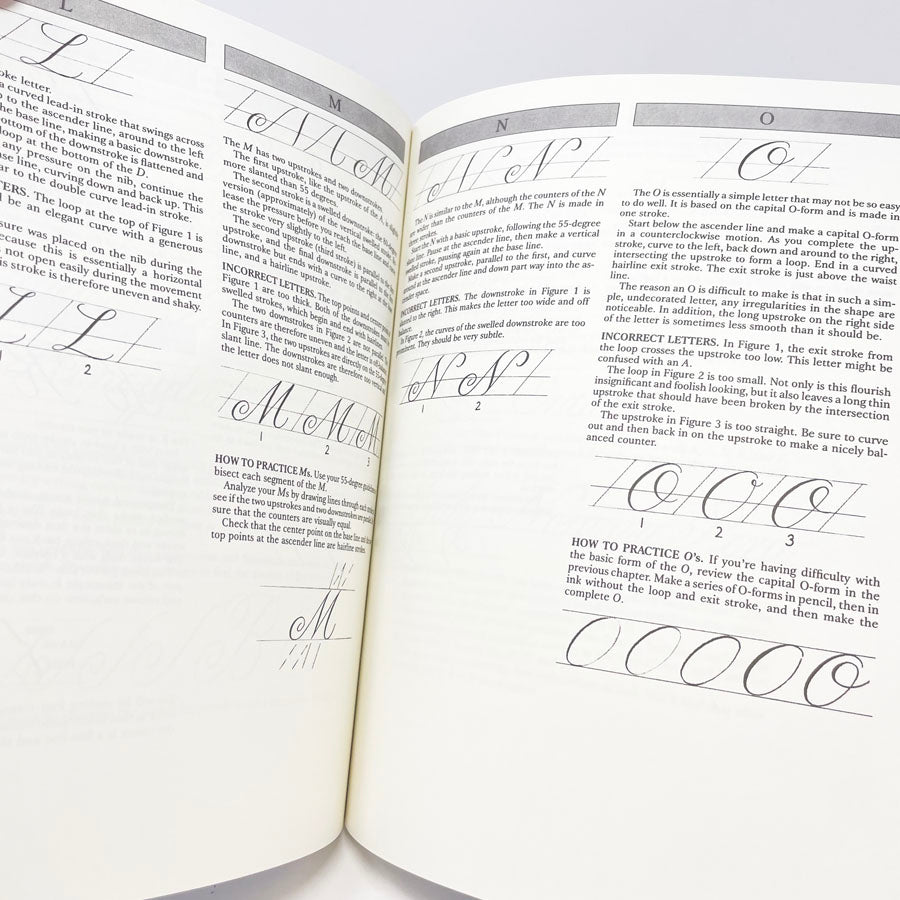 L
L
oke letter.
a curved lead-in stroke that swings across
p to the ascender line, around to the left
the base line, making a basic downstroke.
bottom of the downstroke is flattened and
loop at the bottom of the D.
any pressure on the nib, continue the
ase line, curving down and back up. This
ar to the double curve lead-in stroke.
TERS. The loop at the top of Figure 1 is
d be an elegant curve with a generous
sure was placed on the nib during the
ecause this is essentially a horizontal
not open easily during the movement
is stroke is therefore uneven and shaky.
L L
2
M
M M
The M has two upstrokes and two downstrokes.
The first upstroke, like the upstroke of the A, is slightly
more slanted than 55 degrees.
The second stroke is a swelled downstroke, the
version (approximately) of the vertical swelled stroke.
lease the pressure before you reach the base line
the stroke very slightly to the left.
The second upstroke (third stroke) is parallel to the
upstroke, and the final downstroke is parallel to the
downstroke but ends with a curve to the right at the
line, and a hairline upstroke.
INCORRECT LETTERS. The top points and center point
Figure 1 are too thick. Both of the downstrokes
swelled strokes, which begin and end with hairlines.
The two downstrokes in Figure 2 are not parallel.
counters are therefore uneven and the letter is off
In Figure 3, the two upstrokes are directly on the 55-degree
slant line. The downstrokes are therefore too vertical
the letter does not slant enough.
M M M
1 2 3
HOW TO PRACTICE Ms. Use your 55-degree guidelines
bisect each segment of the M.
Analyze your Ms by drawing lines through each
see if the two upstrokes and two downstrokes are parallel
sure that the counters are visually equal.
Check that the center point on the base line and the
top points at the ascender line are hairline strokes.
M
N
N N
The N is similar to the M, although the counters of the N
are wider than the counters of the M. The N is made in
three strokes.
Start the N with a basic upstroke, following the 55-degree
slant line. Pause at the ascender line, then make a vertical
swelled stroke, pausing again at the base line.
Make a second upstroke, parallel to the first, and curve
around at the ascender line and down part way into the as-
cender space.
INCORRECT LETTERS. The downstroke in Figure 1 is
slanted to the right. This makes the letter too wide and off
balance.
In Figure 2, the curves of the swelled downstroke are too
prominent. They should be very subtle.
N N
1 2
O
O
The O is essentially a simple letter that may not be so easy
to do well. It is based on the capital O-form and is made in
one stroke.
Start below the ascender line and make a capital O-form
in a counterclockwise motion. As you complete the up-
stroke, curve to the left, back down and around to the right,
intersecting the upstroke to form a loop. End in a curved
hairline exit stroke. The exit stroke is just above the waist
line.
The reason an O is difficult to make is that in such a sim-
ple, undecorated letter, any irregularities in the shape are
noticeable. In addition, the long upstroke on the right side
of the letter is sometimes less smooth than it should be.
INCORRECT LETTERS. In Figure 1, the exit stroke from
the loop crosses the upstroke too low. This letter might be
confused with an A.
The loop in Figure 2 is too small. Not only is this flourish
insignificant and foolish looking, but it also leaves a long thin
upstroke that should have been broken by the intersection
of the exit stroke.
The upstroke in Figure 3 is too straight. Be sure to curve
out and then back in on the upstroke to make a nicely bal-
anced counter.
O O O
1 2 3
HOW TO PRACTICE O's. If you're having difficulty with
the basic form of the O, review the capital O-form in the
previous chapter. Make a series of O-forms in pencil, then in
ink without the loop and exit stroke, and then make the
complete O.
O O O O O